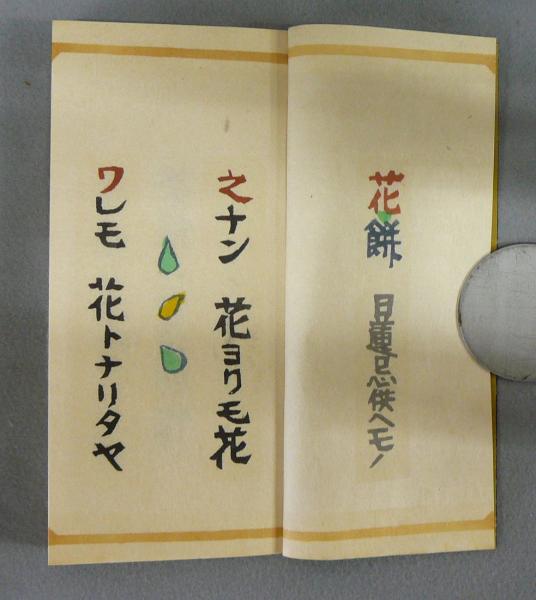 花餅 日蓮忌供ヘモノ
之ナン 花ヨリモ花
ワレモ 花トナリタヤ